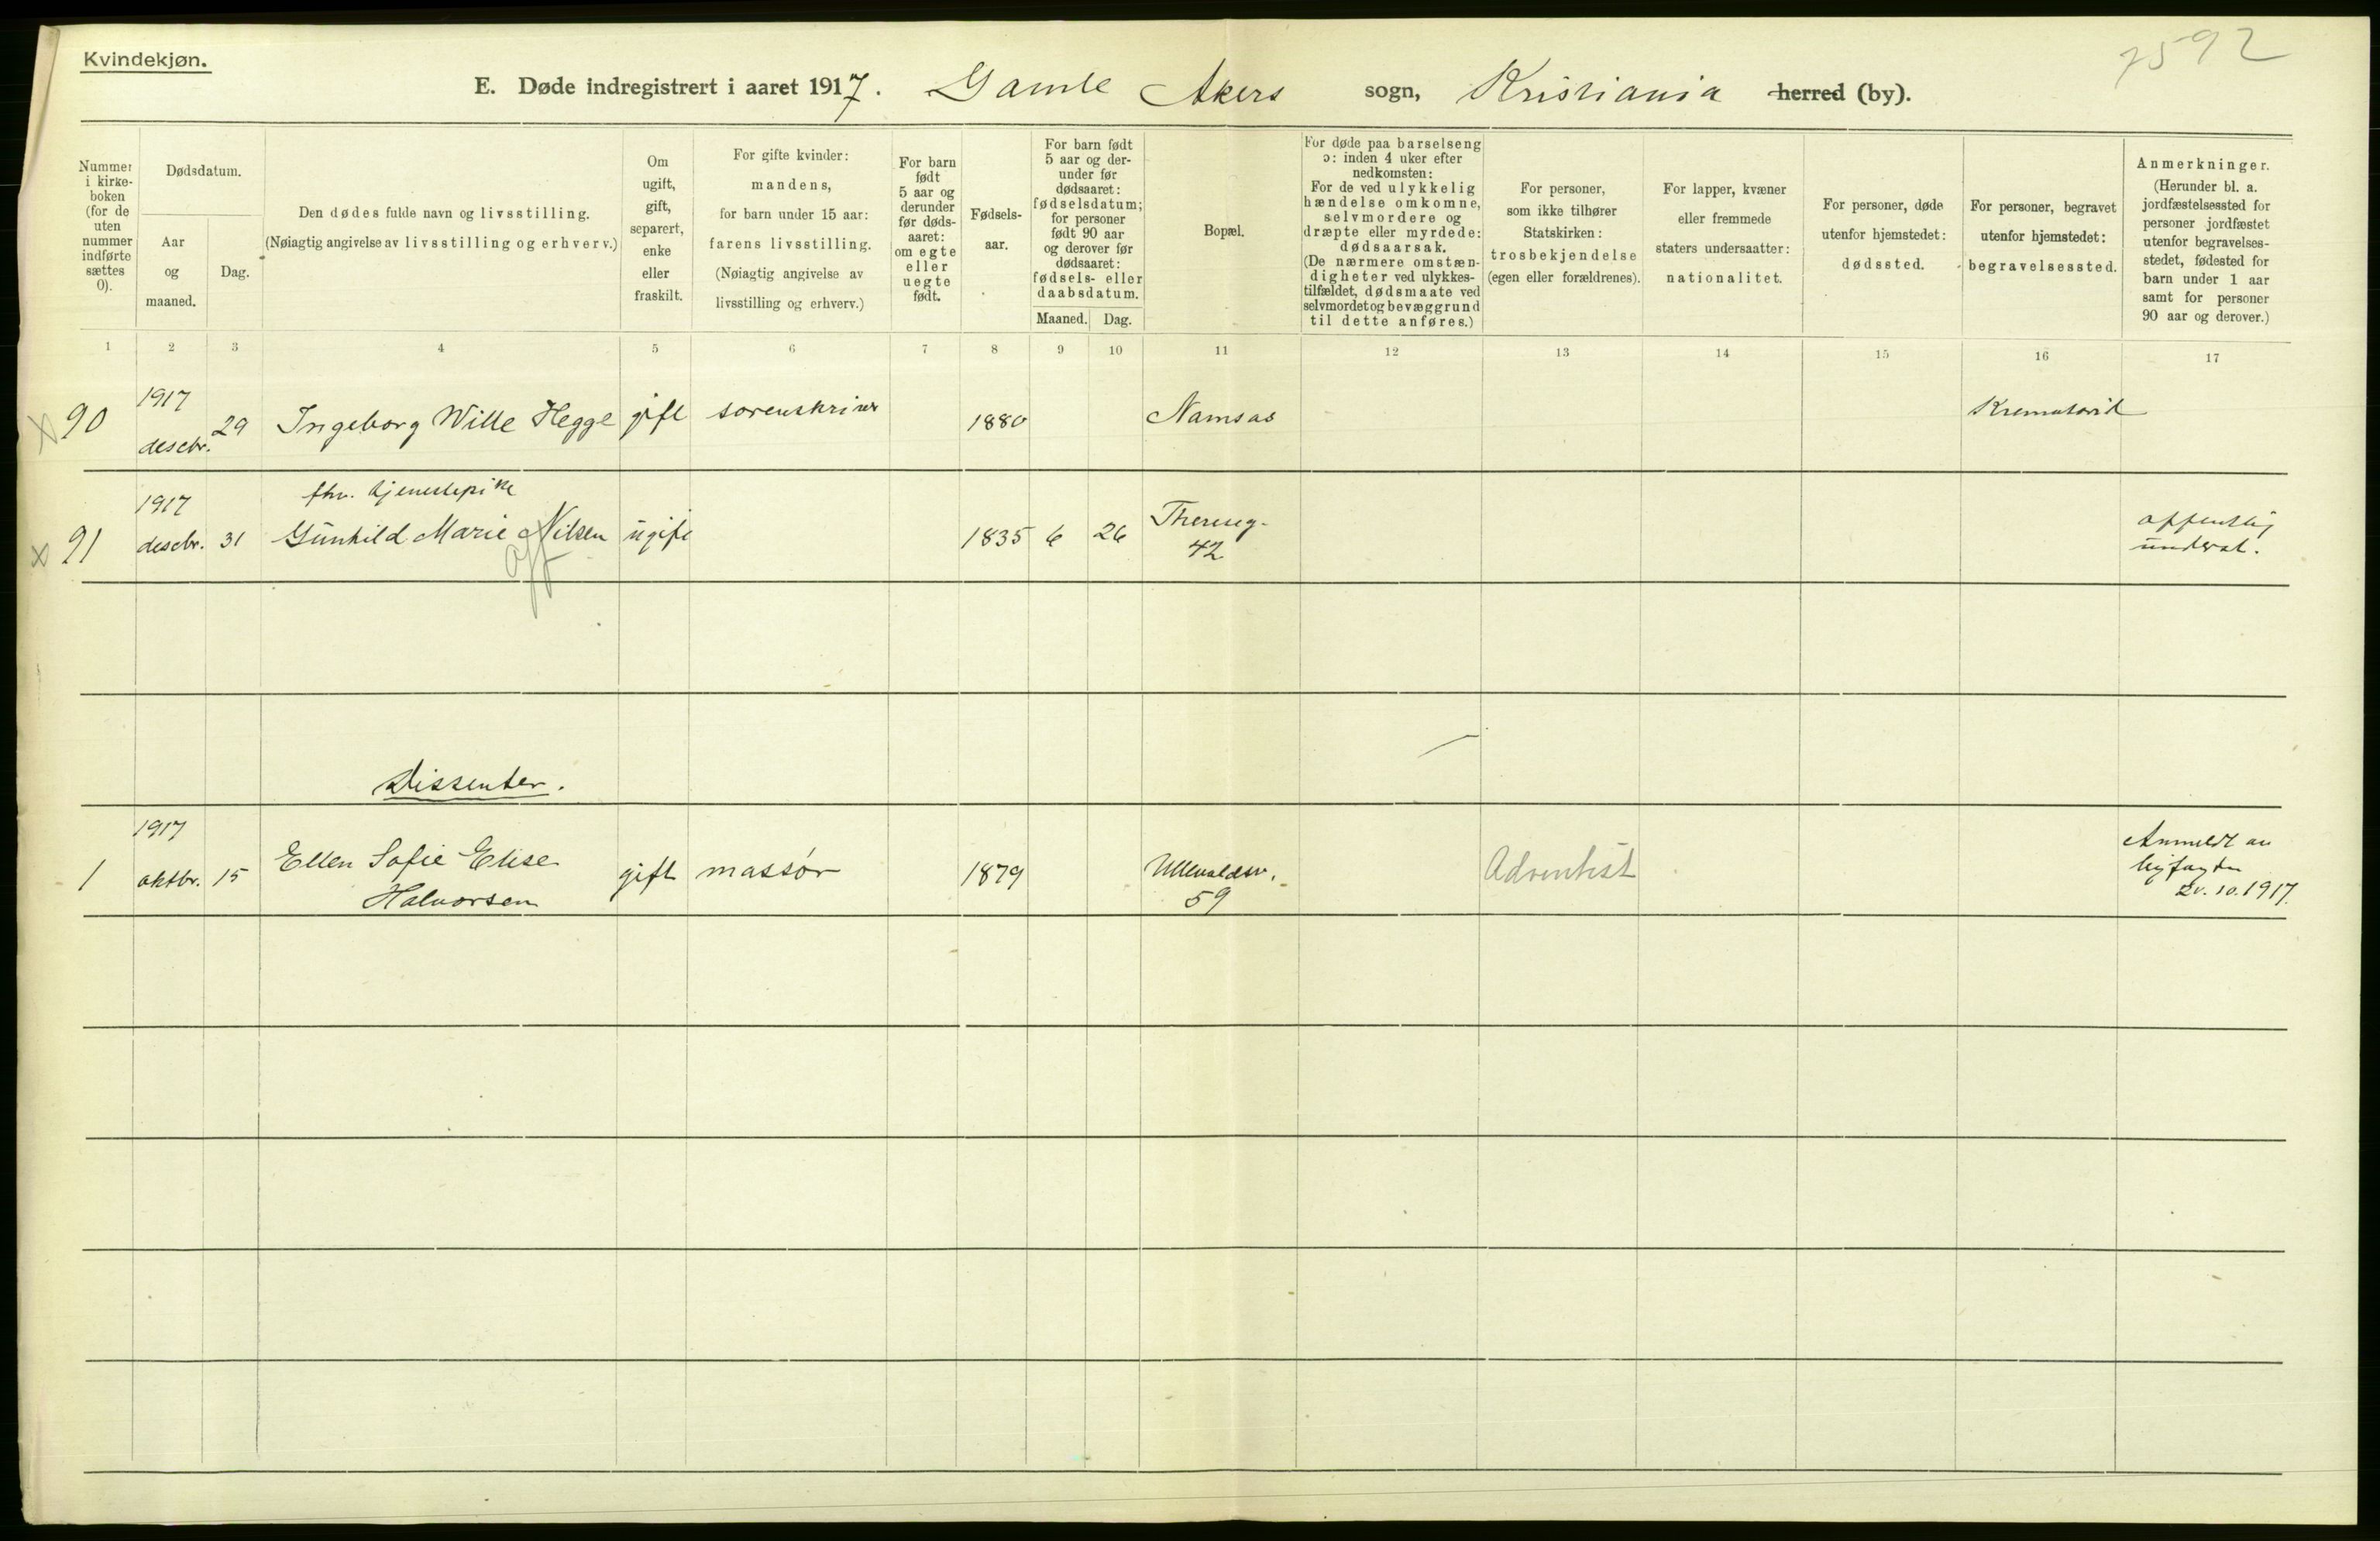 Kvindekjøn.
7592
E. Døde indregistrert i aaret 1917. Gamle Akers sogn, Kristiania herred (by).
Nummer i kirke-boken (for de uten nummer indførte sættes 0).
Dødsdatum.
Aar og maaned.
Dag.
Den dødes fulde navn og livsstilling.
(Nøiagtig angivelse av livsstilling og erhverv.)
Om ugift, gift, separert, enke eller fraskilt.
For gifte kvinder: mandens, for barn under 15 aar: farens livsstilling.
(Nøiagtig angivelse av livsstilling og erhverv.)
For barn født 5 aar og derunder før døds-aaret: om egte eller uegte født.
Fødsels-aar.
For barn født 5 aar og der-under før dødsaaret: fødselsdatum; for personer født 90 aar og derover før dødsaaret: fødsels- eller daabsdatum.
Maaned. Dag.
Bopæl.
For døde paa barselseng ɔ: inden 4 uker efter nedkomsten: For de ved ulykkelig hændelse omkomne, selvmordere og dræpte eller myrdede: dødsaarsak.
(De nærmere omstæn-digheter ved ulykkes-tilfældet, dødsmaate ved selvmordet og bevæggrund til dette anføres.)
For personer, som ikke tilhører Statskirken: trosbekjendelse (egen eller forældrenes).
For lapper, kvæner eller fremmede staters undersaatter: nationalitet.
For personer, døde utenfor hjemstedet: dødssted.
For personer, begravet utenfor hjemstedet: begravelsessted.
Anmerkninger.
(Herunder bl. a. jordfæstelsessted for personer jordfæstet utenfor begravelses-stedet, fødested for barn under 1 aar samt for personer 90 aar og derover.)
1 2 3 4 5 6 7 8 9 10 11 12 13 14 15 16 17
x 90 1917 desebr. 29 Ingeborg Wille Hegge gift sorenskriver 1880 Namsos Krematoriet
fhv. tjenestepike
x 91 1917 desebr. 31 Gunhild Marie Nilsen ugift 1835 6 26 Thereseg. 42 offentlig underst.
off
Dissenter.
1 1917 oktbr. 15 Ellen Sofie Elise Halvorsen gift massør 1879 Ullevaldsv. 59 Adventist Anmeldt av
10.1917.